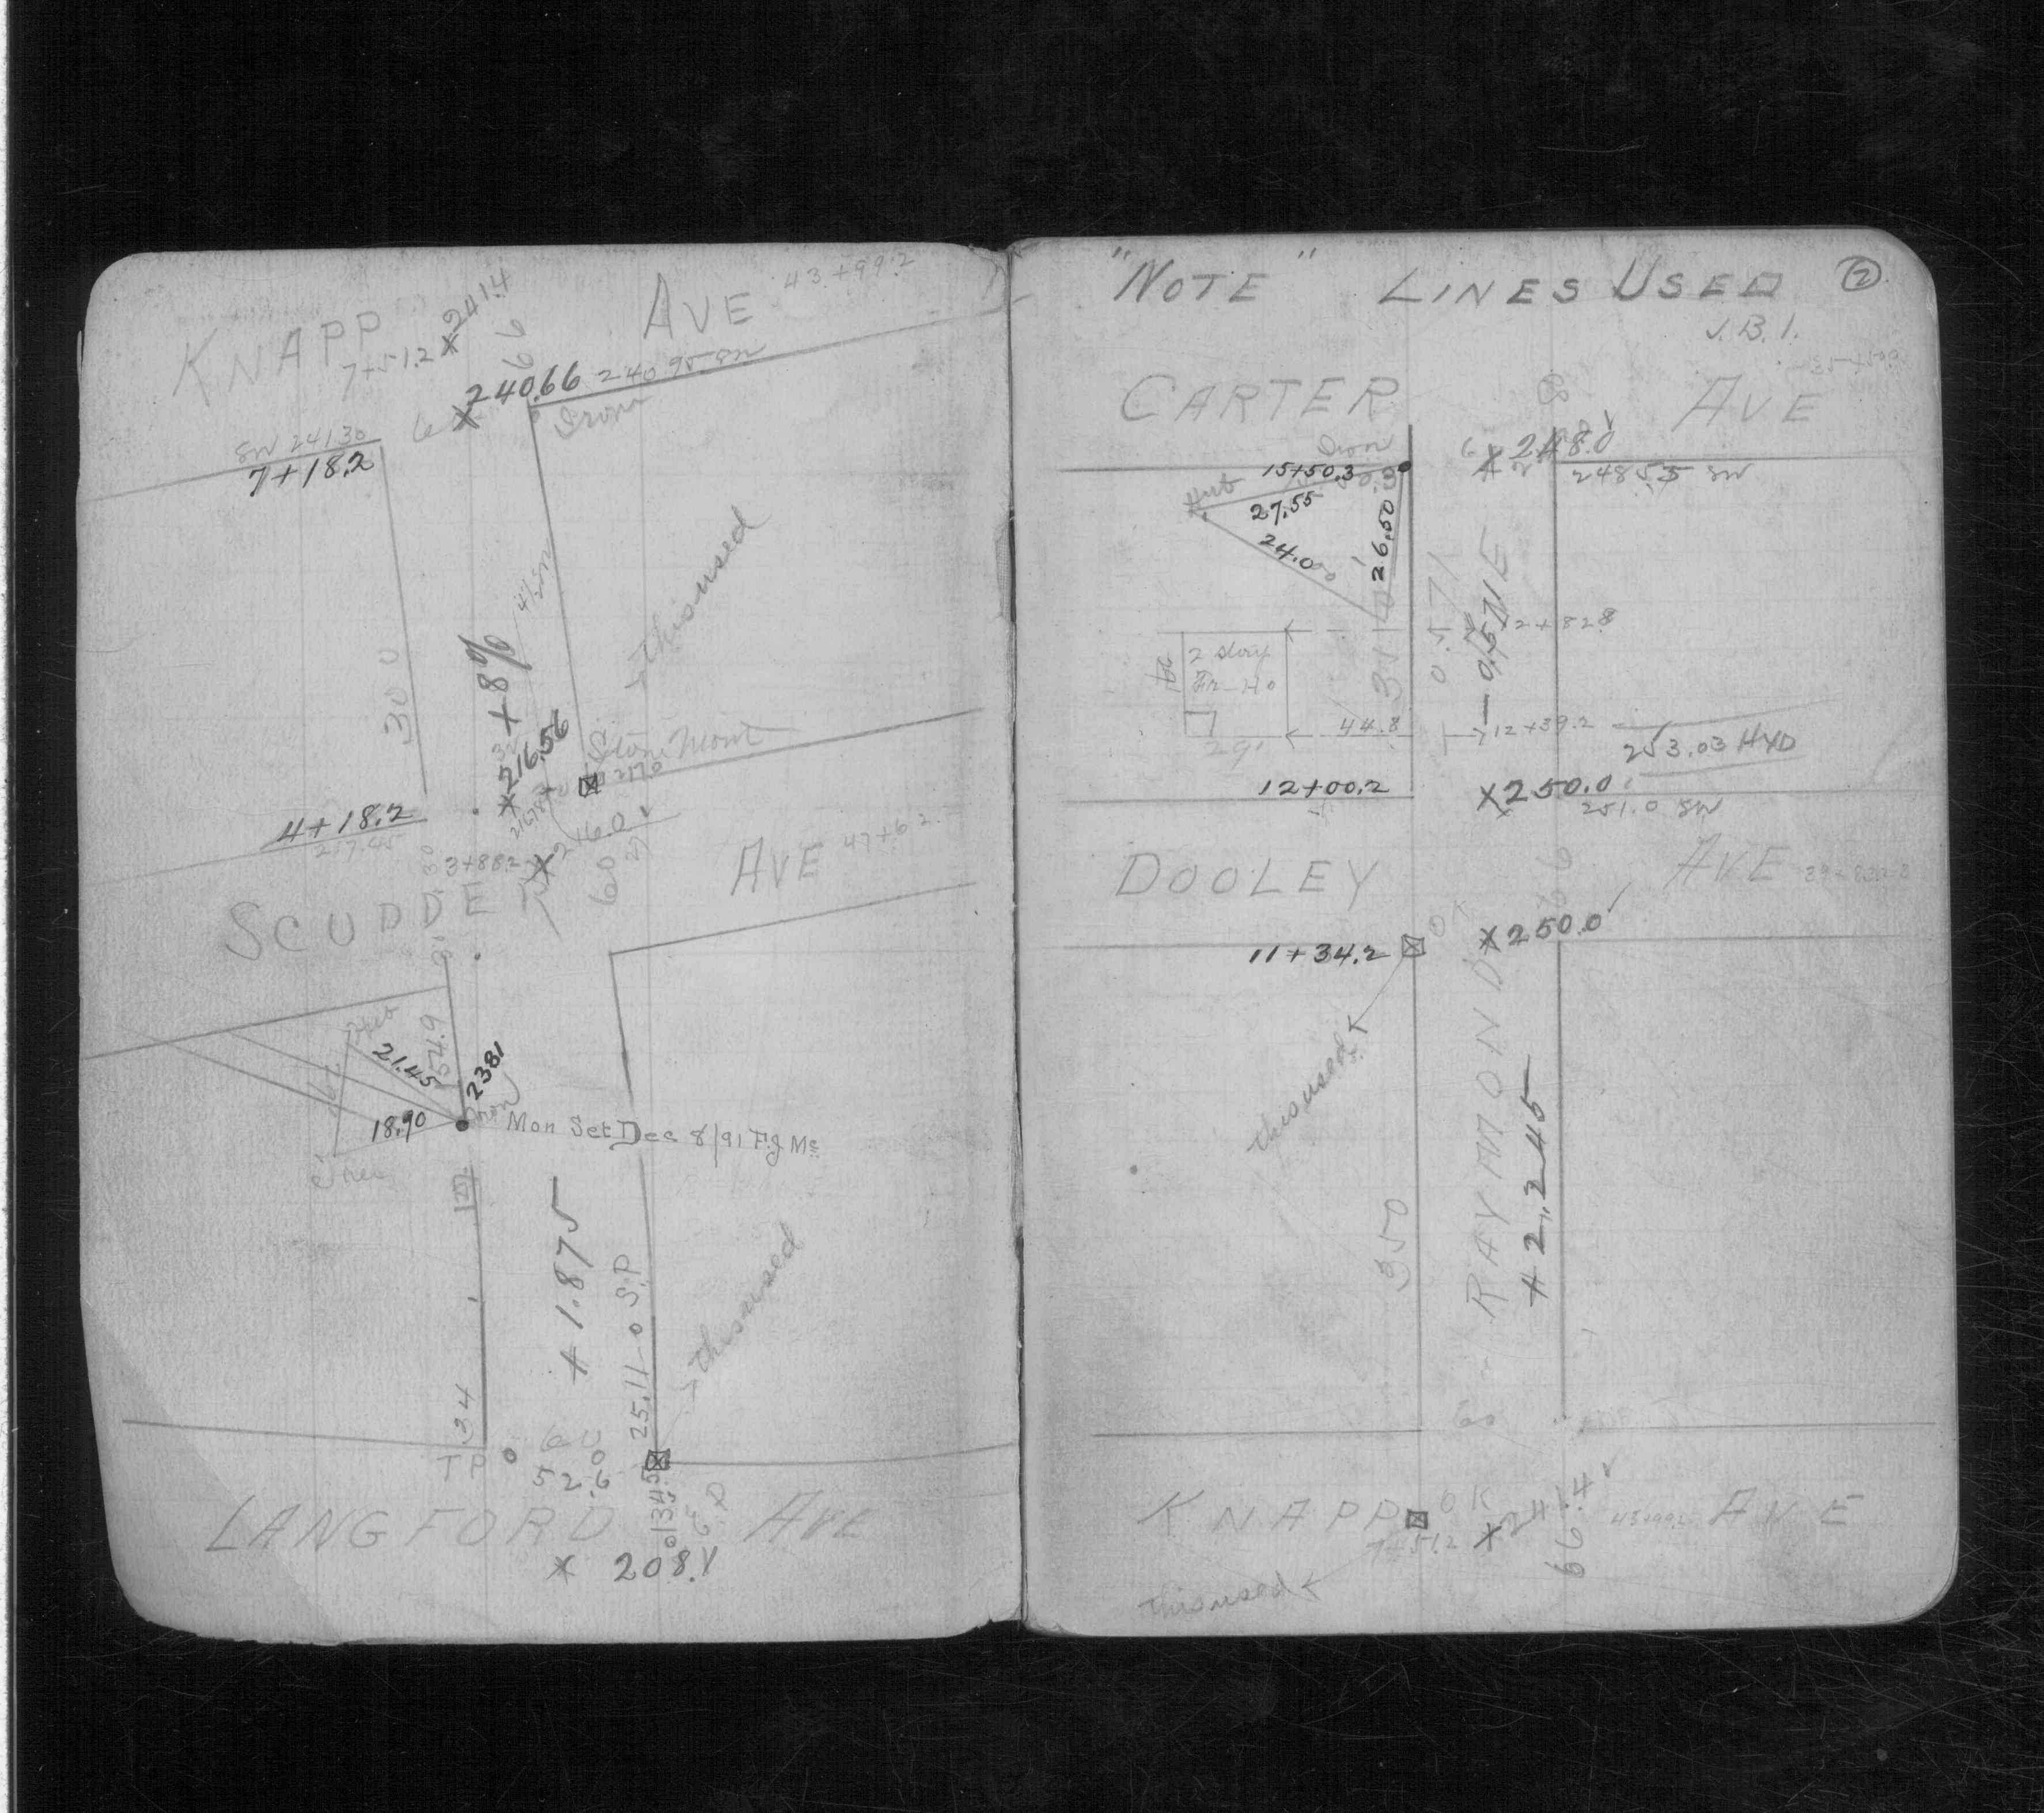 KNAPP AVE 43+99.2
7+51.2 x 241.4
66
x 240.66 240 95 SW
Iron
SW 241.30
7+18.2
300
+8%
this used
x 216.56
Stone Mont
4+18.2
3+88.2 x 216.0
60
SCUDDE AVE 47+6 2.
Hub
21.45
154.9
2381
Iron
18.90
Mon Set Dec 8/91 F.J. Mc
Tree
+ 1.875
25.11 o S.P
this used
34
TP 60
52.6
0134.5
LANGFORD AVE
x 208.1
"NOTE" LINES USED 2
J.B.I.
CARTER AVE
Iron
x 248.0
15+50.3
248.55 SW
Hub
27.55
24.0
26.50
0.571
- 0.571 E
12+828
2 story
Fr Ho
44.8
12+39.2
29'
253.03 HYD
12+00.2
x 250.0
251.0 SW
DOOLEY AVE
66
OK
11+34.2
x 250.0
this used
350
RAYMOND
+ 2.245
60
KNAPP OK AVE
7+51.2 x 241.4
66
this used